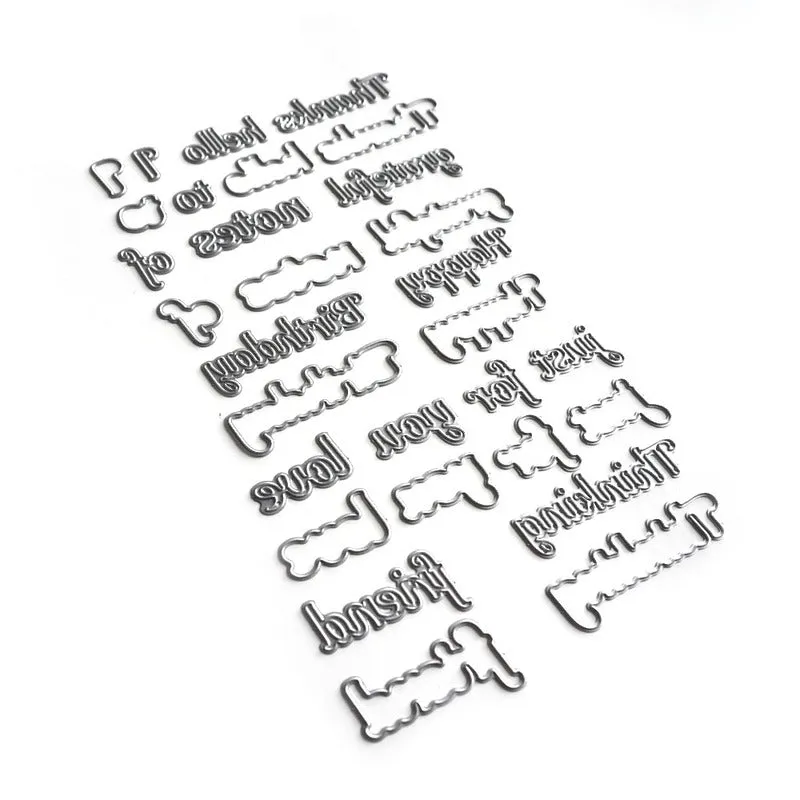 Thanks
hello
I
to
grateful
notes
of
Happy
Birthday
just
for
you
love
Thinking
friend